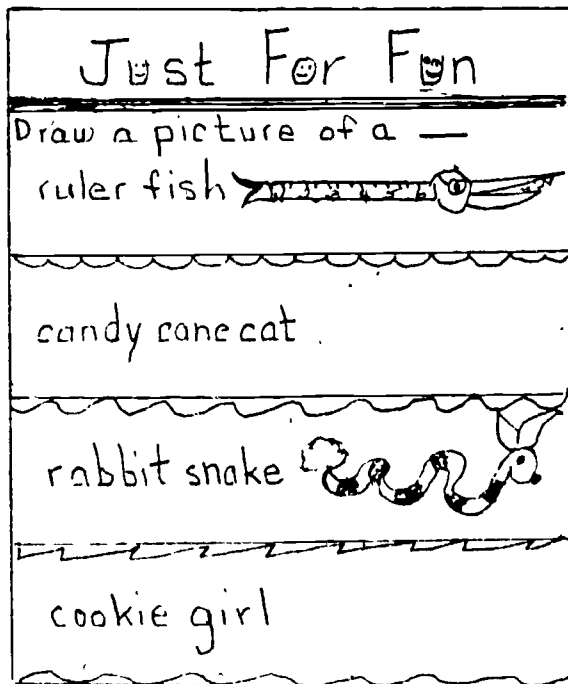 Just For Fun
Draw a picture of a —
ruler fish
candy cane cat
rabbit snake
cookie girl